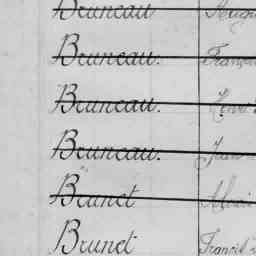 Bruneau
Bruneau. François
Bruneau. Henri
Bruneau. Jean
Brunet
Brunet Francis